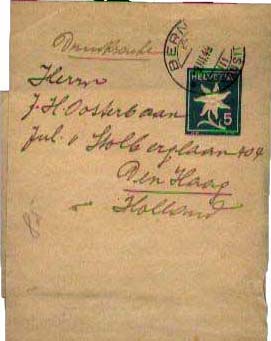 Drucksache
BERN
HELVETIA
5
Herrn
J. H. Oosterbaan
Jul. v Stolberglaan 404
Den Haag
Holland